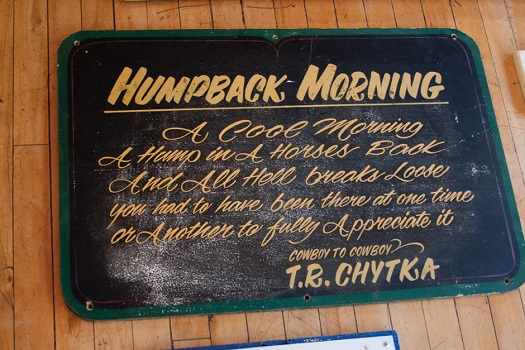 HUMPBACK MORNING
A Cool Morning
A Hump in A Horses Back
And All Hell breaks Loose
you had to have been there at one time
or Another to fully Appreciate it
COWBOY TO COWBOY
T.R. CHYTKA